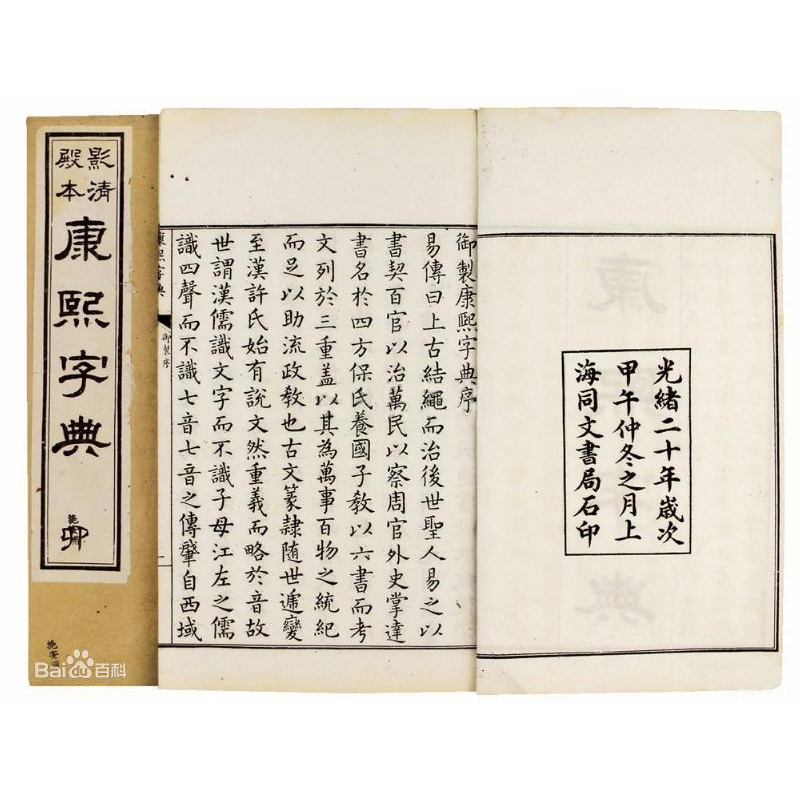 影清
殿本
康熙字典
光緒二十年歲次
甲午仲冬之月上
海同文書局石印
御製康熙字典序
易傳曰上古結繩而治後世聖人易之以
書契百官以治萬民以察周官外史掌達
書名於四方保氏養國子教以六書而考
文列於三重蓋以其為萬事百物之統紀
而足以助流政教也古文篆隸隨世遞變
至漢許氏始有說文然重義而略於音故
世謂漢儒識文字而不識子母江左之儒
識四聲而不識七音七音之傳肇自西域
康熙字典
御製序
一
Bai百科